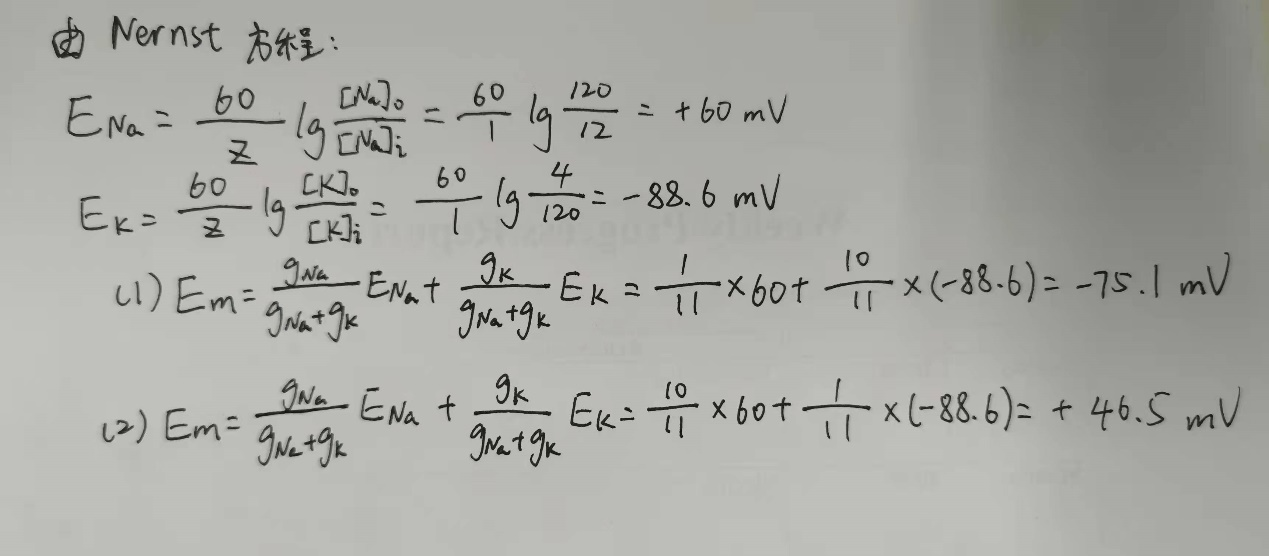 由 Nernst 方程:
E_Na = 60/z lg [Na]o/[Na]i = 60/1 lg 120/12 = +60 mV
E_K = 60/z lg [K]o/[K]i = 60/1 lg 4/120 = -88.6 mV
(1) Em = g_Na/(g_Na+g_K) E_Na + g_K/(g_Na+g_K) E_K = 1/11 × 60 + 10/11 × (-88.6) = -75.1 mV
(2) Em = g_Na/(g_Na+g_K) E_Na + g_K/(g_Na+g_K) E_K = 10/11 × 60 + 1/11 × (-88.6) = +46.5 mV